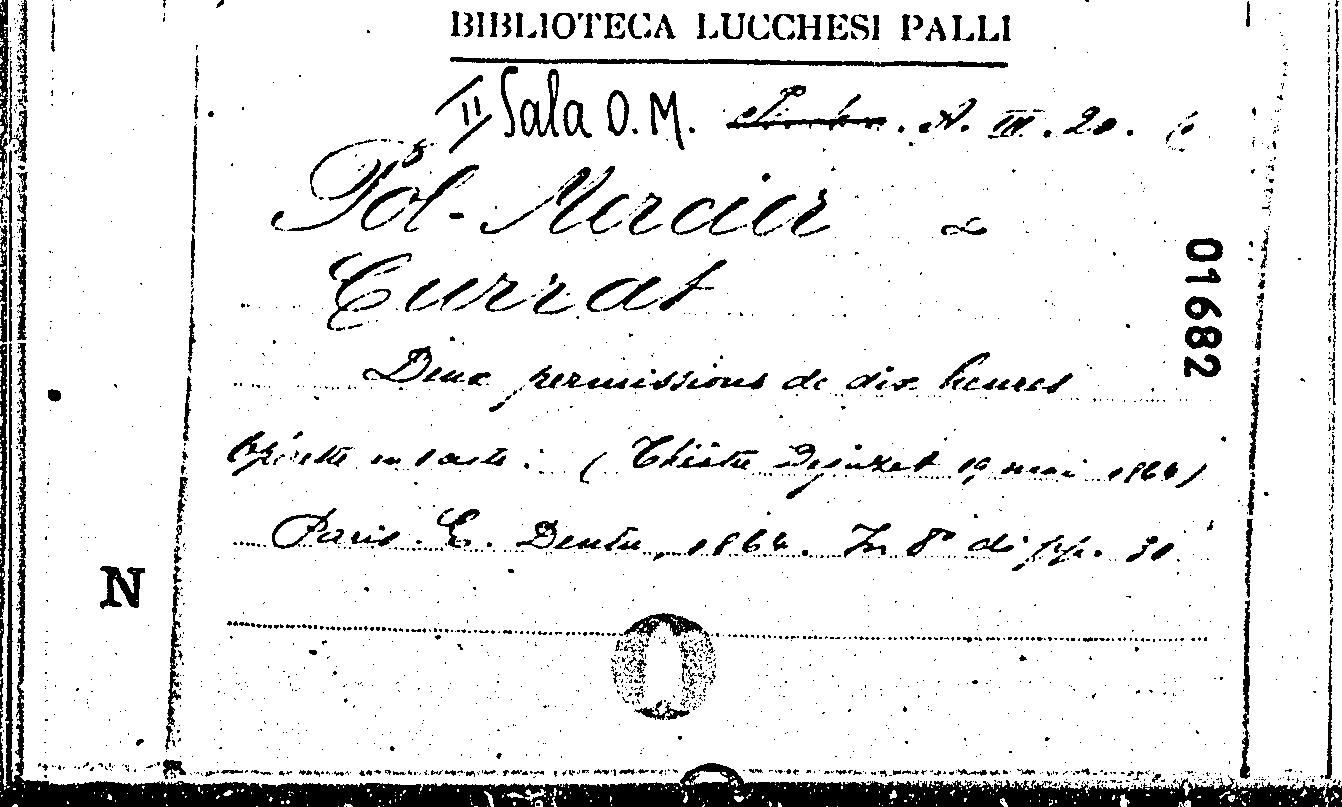 BIBLIOTECA LUCCHESI PALLI
II Sala O.M. A. III. 20. 6
Pol-Mercier e
Currat
Deux permissions de dix heures
Opérette en 1 acte. (Théâtre Dejazet 19 mai 1864)
Paris. E. Dentu, 1864. In 8° di pp. 30
01682
N